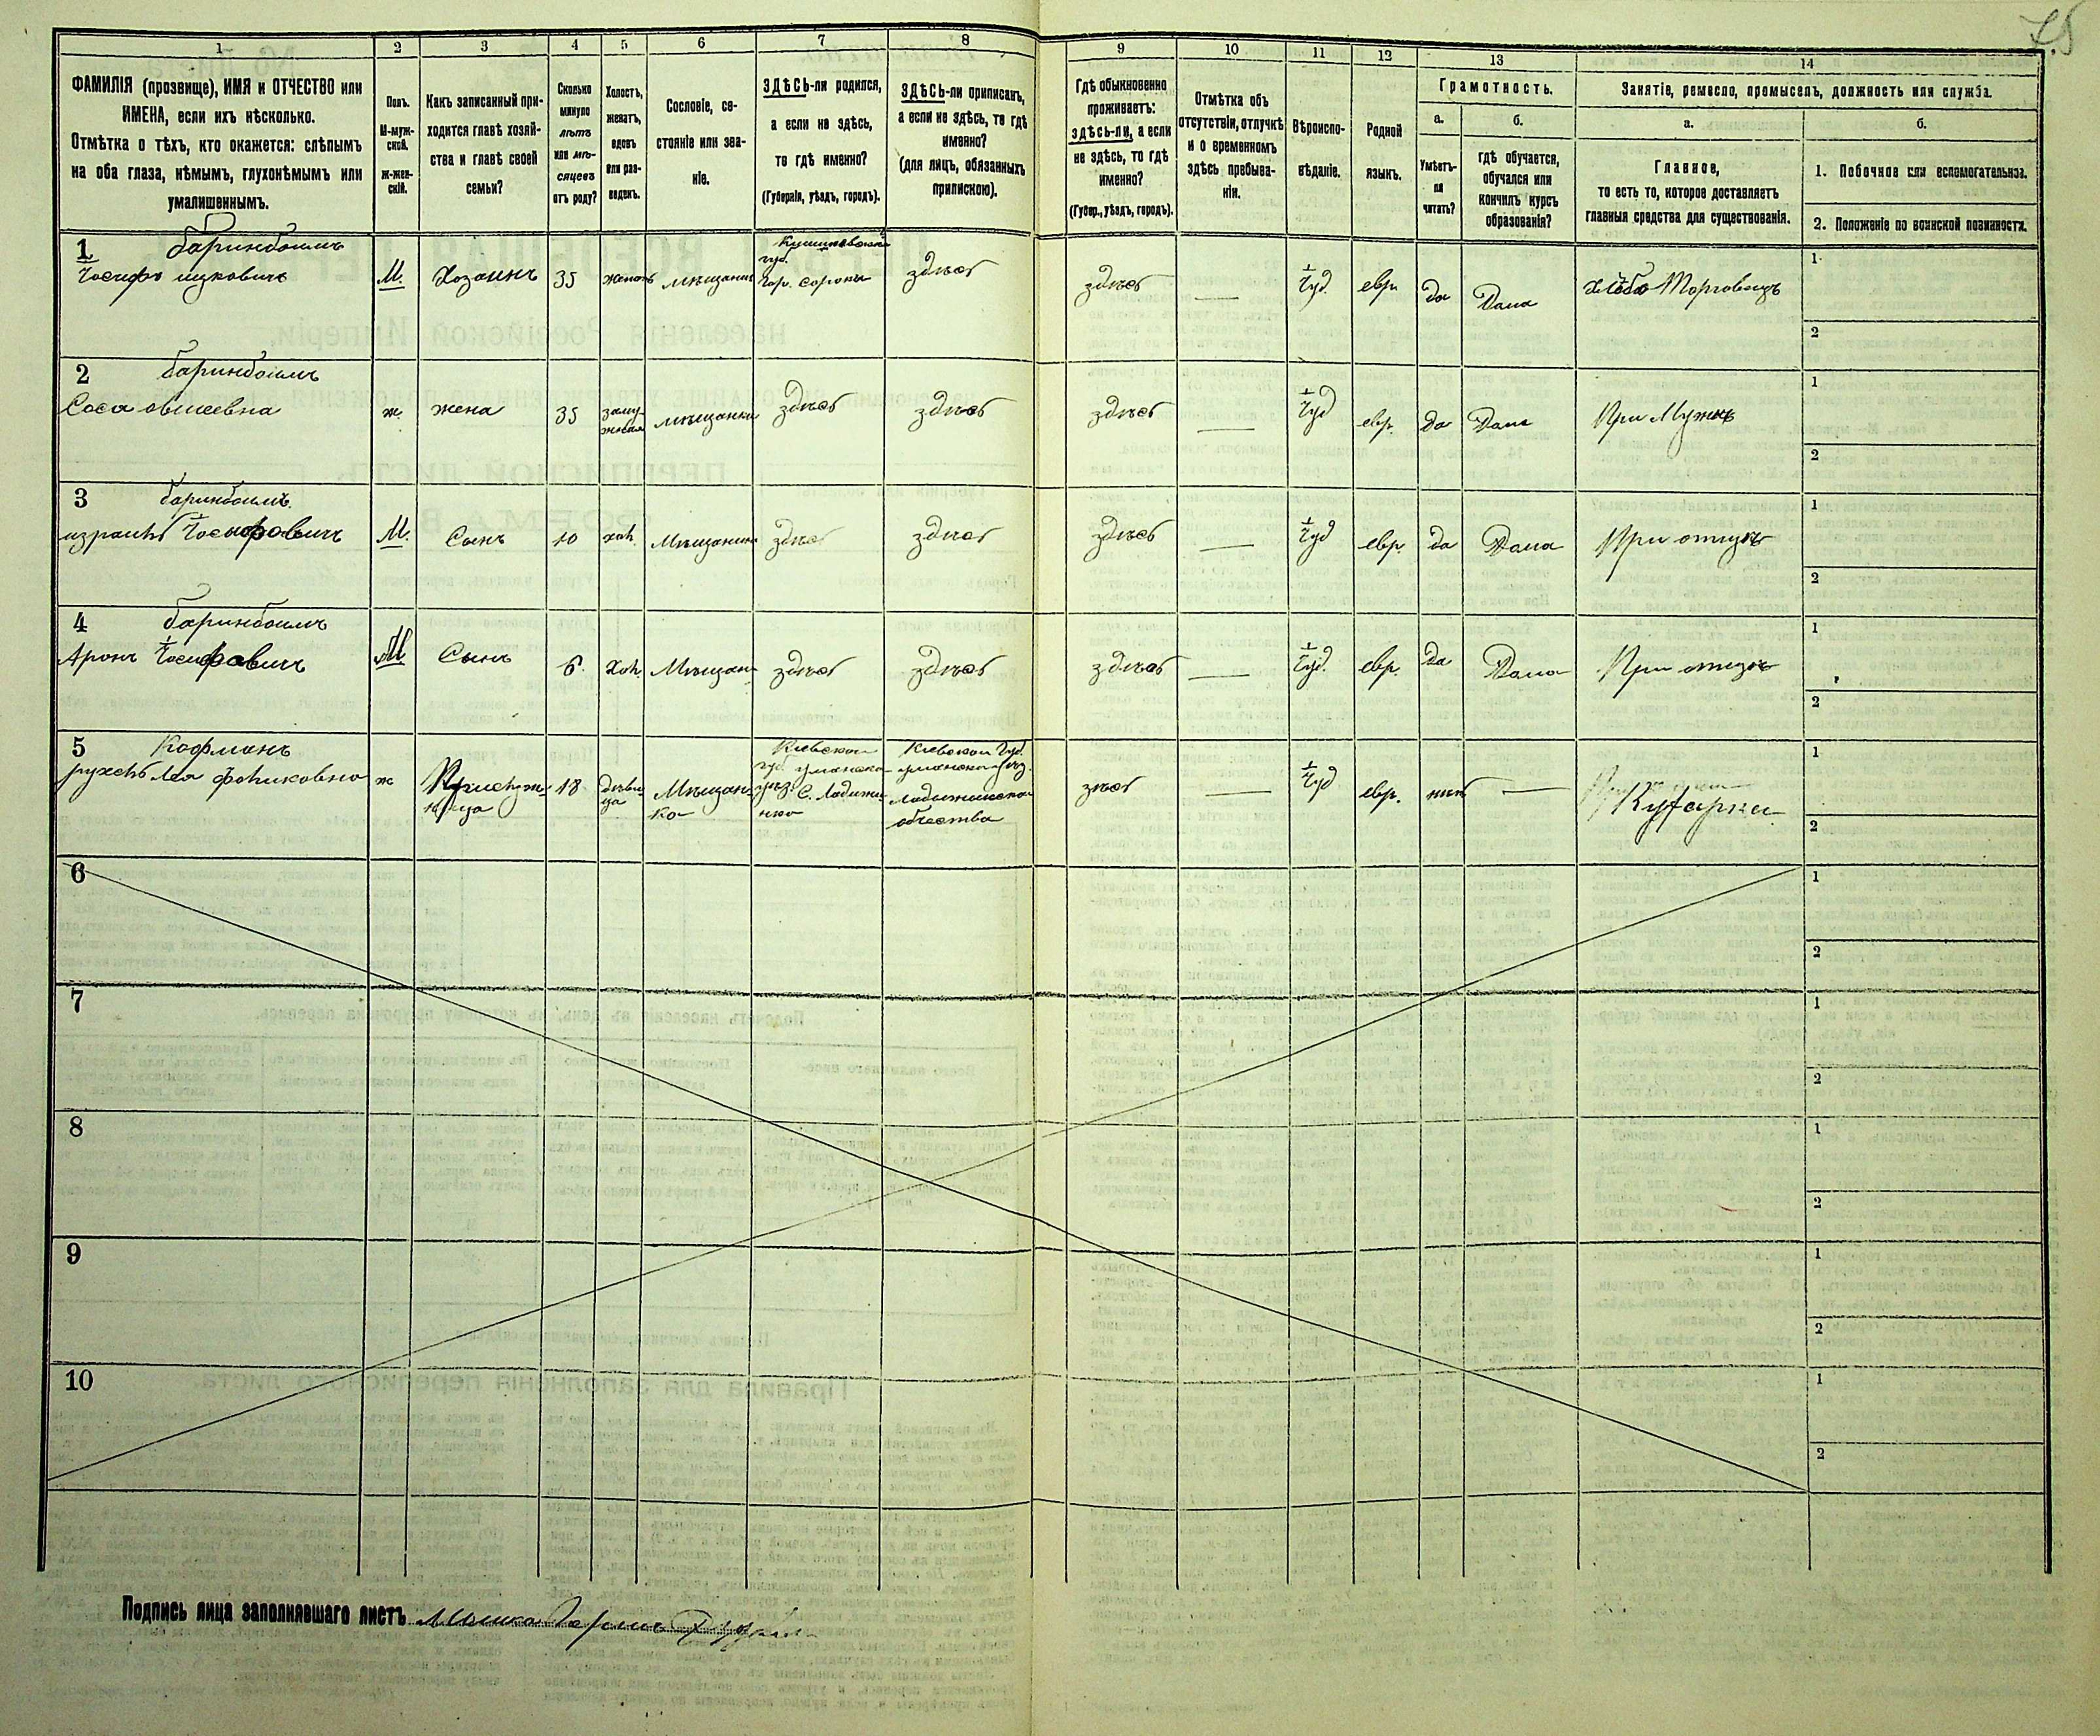 75
1
2
3
4
5
6
7
8
9
10
11
12
13
14
ФАМИЛІЯ (прозвище), ИМЯ и ОТЧЕСТВО или
ИМЕНА, если ихъ нѣсколько.
Отмѣтка о тѣхъ, кто окажется: слѣпымъ
на оба глаза, нѣмымъ, глухонѣмымъ или
умалишеннымъ.
Полъ.
М-муж-
ской.
ж-жен-
скій.
Какъ записанный при-
ходится главѣ хозяй-
ства и главѣ своей
семьи?
Сколько
минуло
лѣтъ
или мѣ-
сяцевъ
отъ роду?
Холостъ,
женатъ,
вдовъ
или раз-
веденъ.
Сословіе, со-
стояніе или зва-
ніе.
ЗДѢСЬ-ли родился,
а если не здѣсь,
то гдѣ именно?
(Губернія, уѣздъ, городъ).
ЗДѢСЬ-ли приписанъ,
а если не здѣсь, то гдѣ
именно?
(для лицъ, обязанныхъ
припискою).
Гдѣ обыкновенно
проживаетъ:
здѣсь-ли, а если
не здѣсь, то гдѣ
именно?
(Губер., уѣздъ, городъ).
Отмѣтка объ
отсутствіи, отлучкѣ
и о временномъ
здѣсь пребыва-
ніи.
Вѣроиспо-
вѣданіе.
Родной
языкъ.
Грамотность.
а.
б.
Умѣетъ-
ли
читать?
гдѣ обучается,
обучался или
кончилъ курсъ
образованія?
Занятіе, ремесло, промыселъ, должность или служба.
а.
б.
Главное,
то есть то, которое доставляетъ
главныя средства для существованія.
1. Побочное или вспомогательное.
2. Положеніе по воинской повинности.
1
баринбоимъ
Іосифъ ицковичъ
М.
Хозаинъ
35
женатъ
мѣщанинъ
губ.
гор. сороки
здѣсь
здѣсь
—
Іуд.
евр.
да
Дома
Торговецъ
1
2
2
баринбоимъ
Соса овшеевна
ж.
жена
35
заму-
жняя
мѣщанка
здѣсь
здѣсь
здѣсь
—
Іуд
евр.
да
Дома
При Мужѣ
1
2
3
баринбоимъ
израиль Іосифовичъ
М.
Сынъ
10
хол.
Мѣщанинъ
здѣсь
здѣсь
здѣсь
—
Іуд
евр.
да
Дома
При отцѣ
1
2
4
баринбоимъ
Аронъ Іосифовичъ
М
Сынъ
6.
Хол.
Мѣщан-
здѣсь
здѣсь
здѣсь
—
Іуд.
евр.
да
Дома
При отцѣ
1
2
5
Кофманъ
рухель Лея фоликовна
ж
18
дѣви-
ца
Мѣщан-
ка
Кіевской
губ. уманска-
уѣз. С. Ладыжи-
нка
Кіевской Губ.
уманска- уѣз.
общества
здѣсь
—
Іуд
евр.
нѣтъ
—
Кухарка
1
2
6
1
2
7
1
2
8
1
2
9
1
2
10
1
2
Подпись лица заполнявшаго листъ